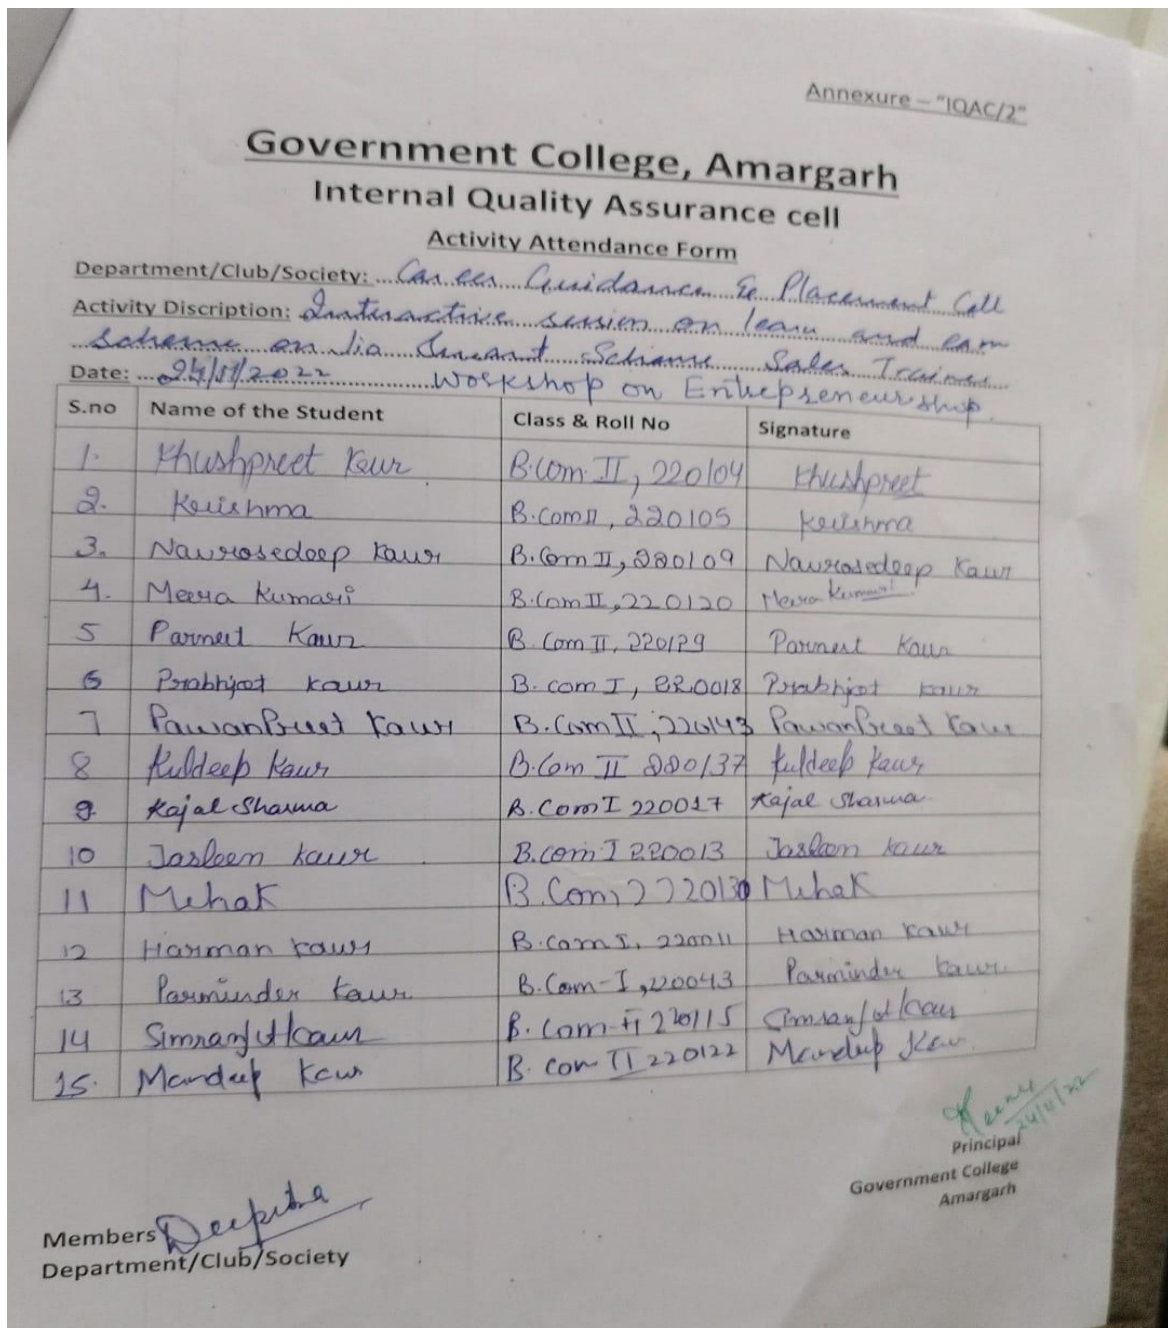 Annexure – "IQAC/2"
Government College, Amargarh
Internal Quality Assurance cell
Activity Attendance Form
Department/Club/Society: Career Guidance & Placement Cell
Activity Discription: Interactive session on learn and earn
scheme on Jio Scheme Sales Trainee
Date: 24/11/2022 Workshop on Entrepreneurship
S.no Name of the Student Class & Roll No Signature
1. Khushpreet Kaur B.Com. II, 220104 Khushpreet
2. Krishma B.Com II, 220105 Krishma
3. Navrosedeep Kaur B.Com II, 220109 Navrosedeep Kaur
4. Meera Kumari B.Com II, 220120 Meera Kumari
5 Parneet Kaur B. Com II, 220129 Parneet Kaur
6 Prabhjot kaur B. com I, 220018 Prabhjot kaur
7 PawanPreet Kaur B.Com II, 220143 PawanPreet Kaur
8 Kuldeep Kaur B.Com II 220137 Kuldeep Kaur
9. Kajal Sharma B.Com I 220017 Kajal Sharma
10 Jasleen kaur B.com I 220013 Jasleen kaur
11 Mehak B.Com, 220130 Mehak
12 Harman kaur B.Com I, 220011 Harman kaur
13 Parminder kaur B.Com-I, 220043 Parminder kaur
14 Simranjit kaur B. Com-II 220115 Simranjit kaur
15. Mandeep Kaur B. com II 220122 Mandeep Kaur
24/11/22
Principal
Government College
Amargarh
Members Deepika
Department/Club/Society